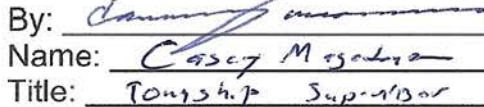 By:
Name: Casey
Title: Township Supervisor